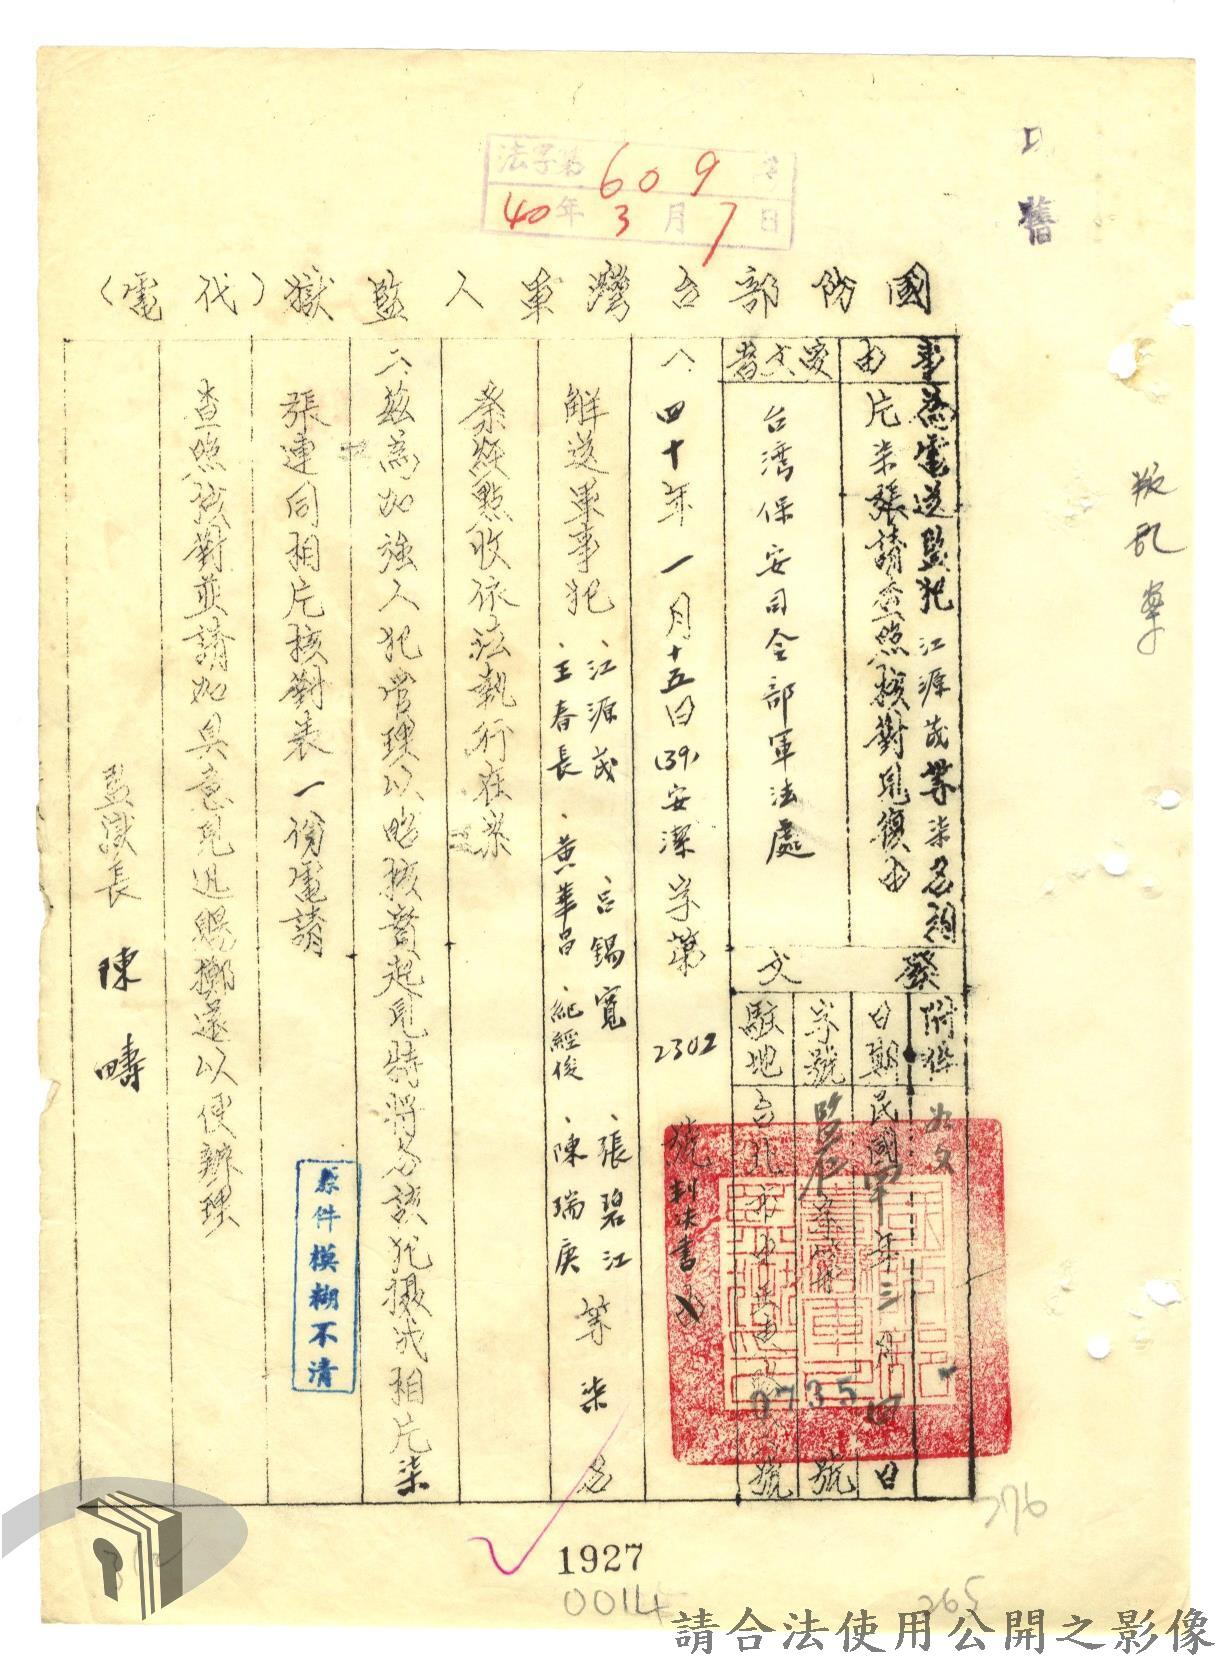 法字第609號
40年3月7日
叛亂案
國防部台灣軍人監獄(代電)
事由
為電送監犯江源茂等柒名相
片柒張請查照核對見復由
受文者
台灣保安司令部軍法處
發文
附件
如文
日期
民國四十年三月四日
字號
0735號
駐地
一、四十年一月十五日(39)安潔字第2302號判決書
解送軍事犯
江源茂 呂錫寬 張碧江
王春長 黃華昌 紀經俊 陳瑞庚
等柒名
業經點收依法執行在案
二、茲為加強人犯管理以昭核實起見特將各該犯攝成相片柒
張連同相片核對表一份電請
查照核對並請加具意見迅賜擲還以便辦理
監獄長 陳疇
原件模糊不清
276
1927
0014
265
請合法使用公開之影像